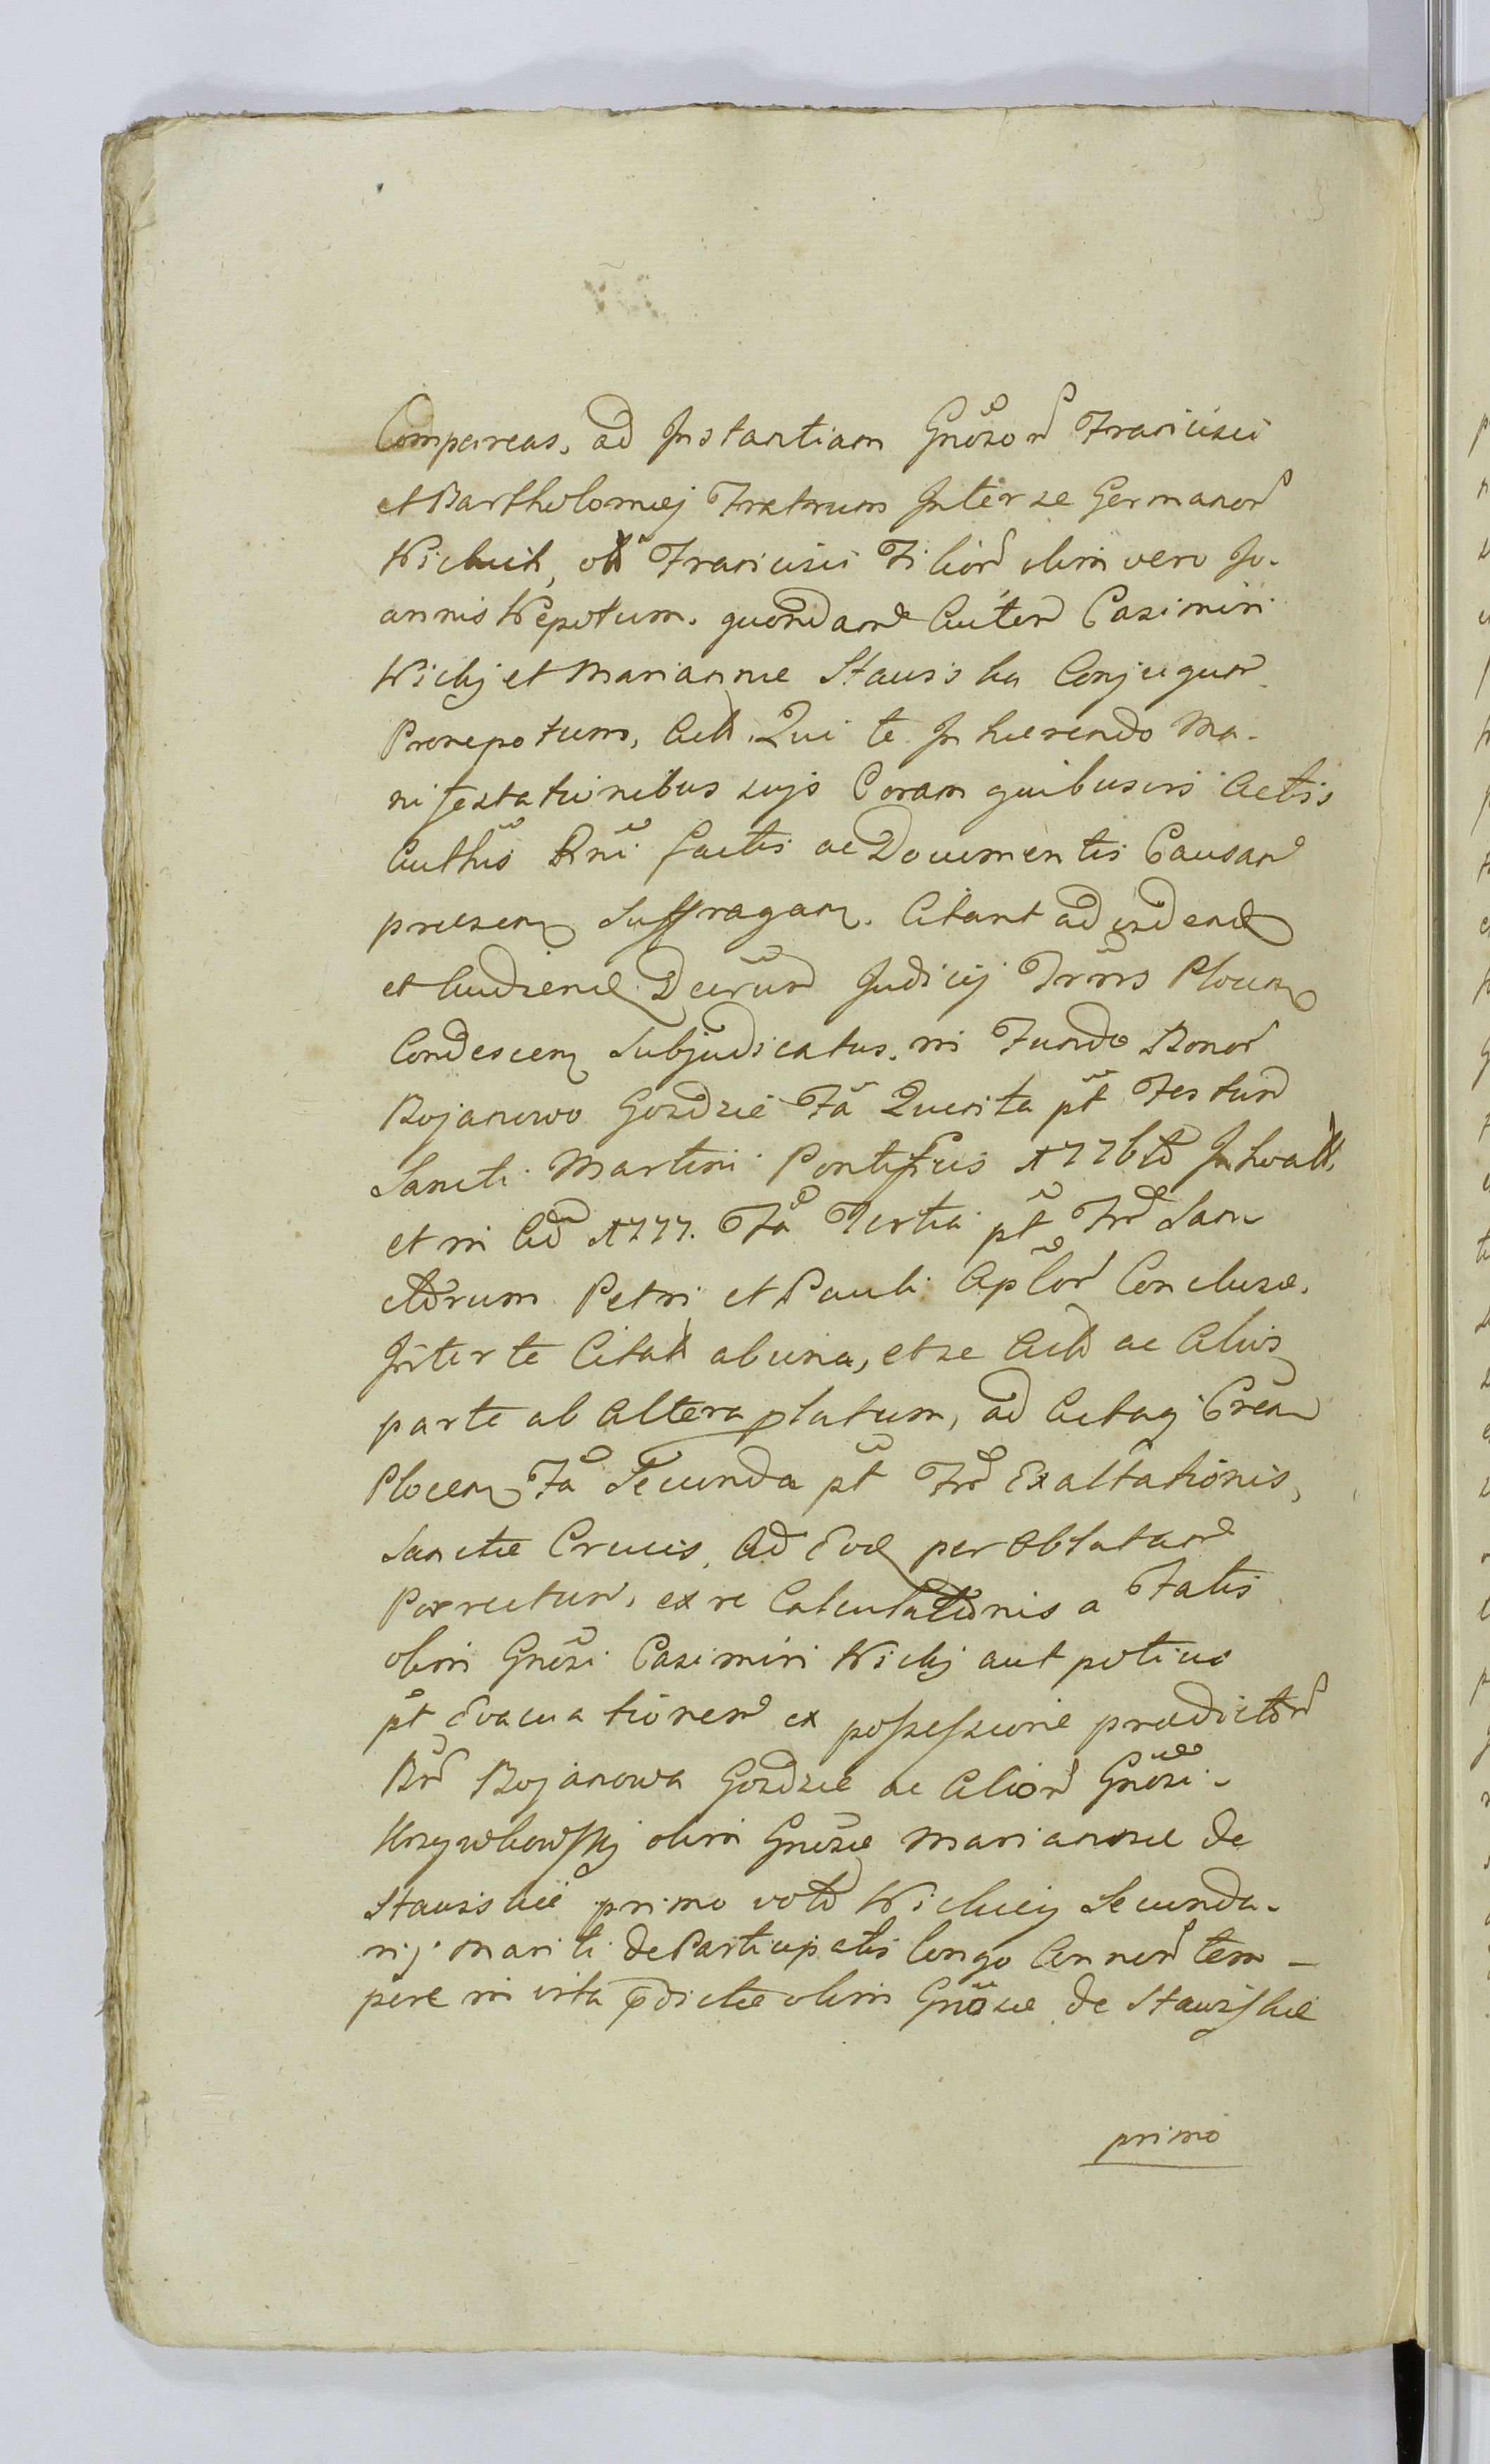 Compareas, ad Instantiam Gnõsorũ Francisci
et Bartholomæj Fratrum Inter se Germanorũ
Wickich, olĩ Francisci Filiorũ olim vero Jo-
annis Nepotum. quondam Autem Casimiri
Wickj et Mariannæ Stawska Conjugum
Pronepotum, Act. Qui te Inhærendo Ma-
nifestationibus suis Coram quibusvis Actis
Authis Rni factis ac Documentis Causam
præsen Suffragan. Citant ad vidend
et Audiend Decrũm Judicij Trñris Plocen
Condescen Subjudicatus. in Fundo Bonorũ
Bojanowo Gozdzie Fã Quinta pt̃ Festum
Sancti Martini Pontificis 1776to Inchoatt,
et in Ao 1777. Fã Tertia pt̃ Frũ San
ctorum Petri et Pauli Aplorũ Conclusæ.
Inter te Citatt ab una, et se Act ac Alios
parte ab Altera platum, ad Actaq Cren
Plocen Fã Secunda pt̃ Frũ Exaltationis,
Sanctæ Crucis, Ad Evd per Oblatam
Porrectum, ex re Calculationis a Fatis
olim Gnõsi Casimiri Wickj aut potius
pt̃ Evacuationem ex possessione prædictorũ
Brũ Bojanowa Gozdzie ac Aliorũ Gnõsi
Krzywkowskj olim Gnõsæ Mariannæ de
Stawskie primo voto Wickiey Secunda-
rij Mariti de Participatis longo Annorũ tem-
pore in vita pdictæ olim Gnõsæ de Stawskie
primo